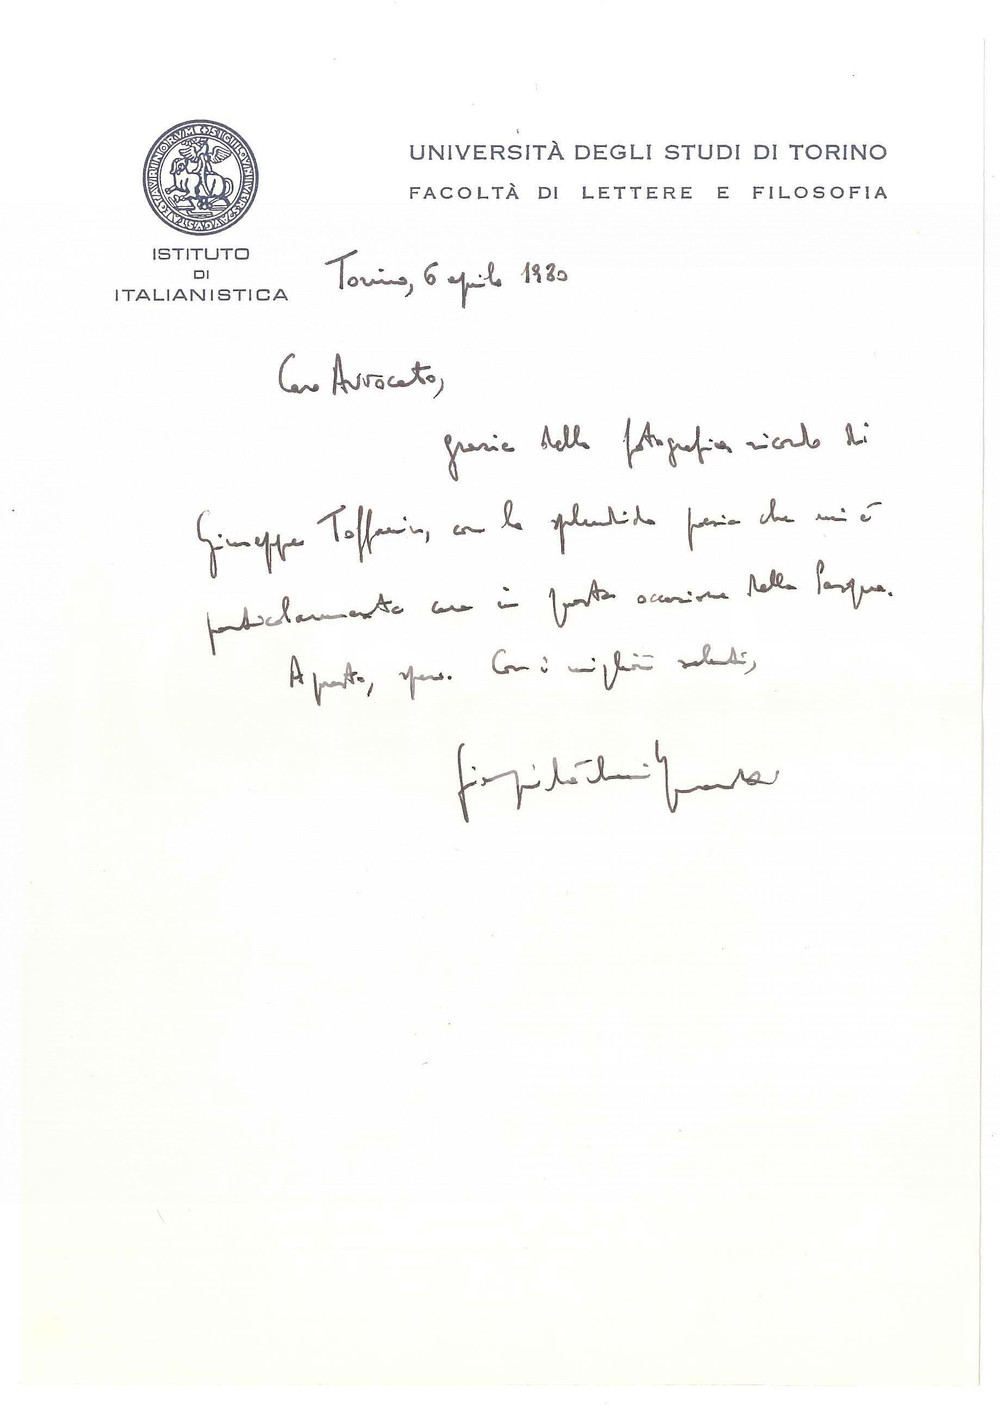 UNIVERSITÀ DEGLI STUDI DI TORINO
FACOLTÀ DI LETTERE E FILOSOFIA
ISTITUTO
DI
ITALIANISTICA
Torino, 6 aprile 1980
Caro Avvocato,
grazie della fotografia ricordo di
Giuseppe Toffanin, con la splendida poesia che mi è
particolarmente cara in questa occasione della Pasqua.
A presto, spero. Con i migliori saluti,